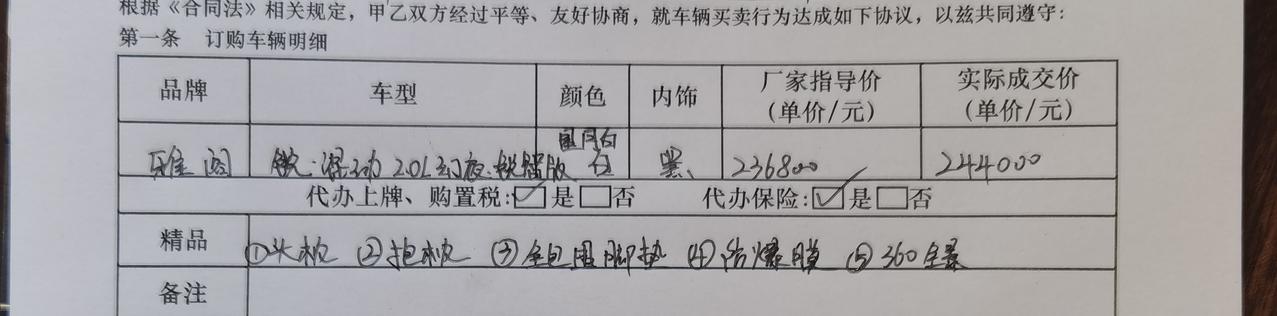 根据《合同法》相关规定，甲乙双方经过平等、友好协商，就车辆买卖行为达成如下协议，以兹共同遵守：
第一条 订购车辆明细
品牌 车型 颜色 内饰 厂家指导价（单价/元） 实际成交价（单价/元）
雅阁 锐·混动 2.0L幻夜·锐智版 白 黑 236800 244000
代办上牌、购置税:☑是□否 代办保险:☑是□否
精品 ①头枕 ②抱枕 ③全包围脚垫 ④防爆膜 ⑤360全景
备注